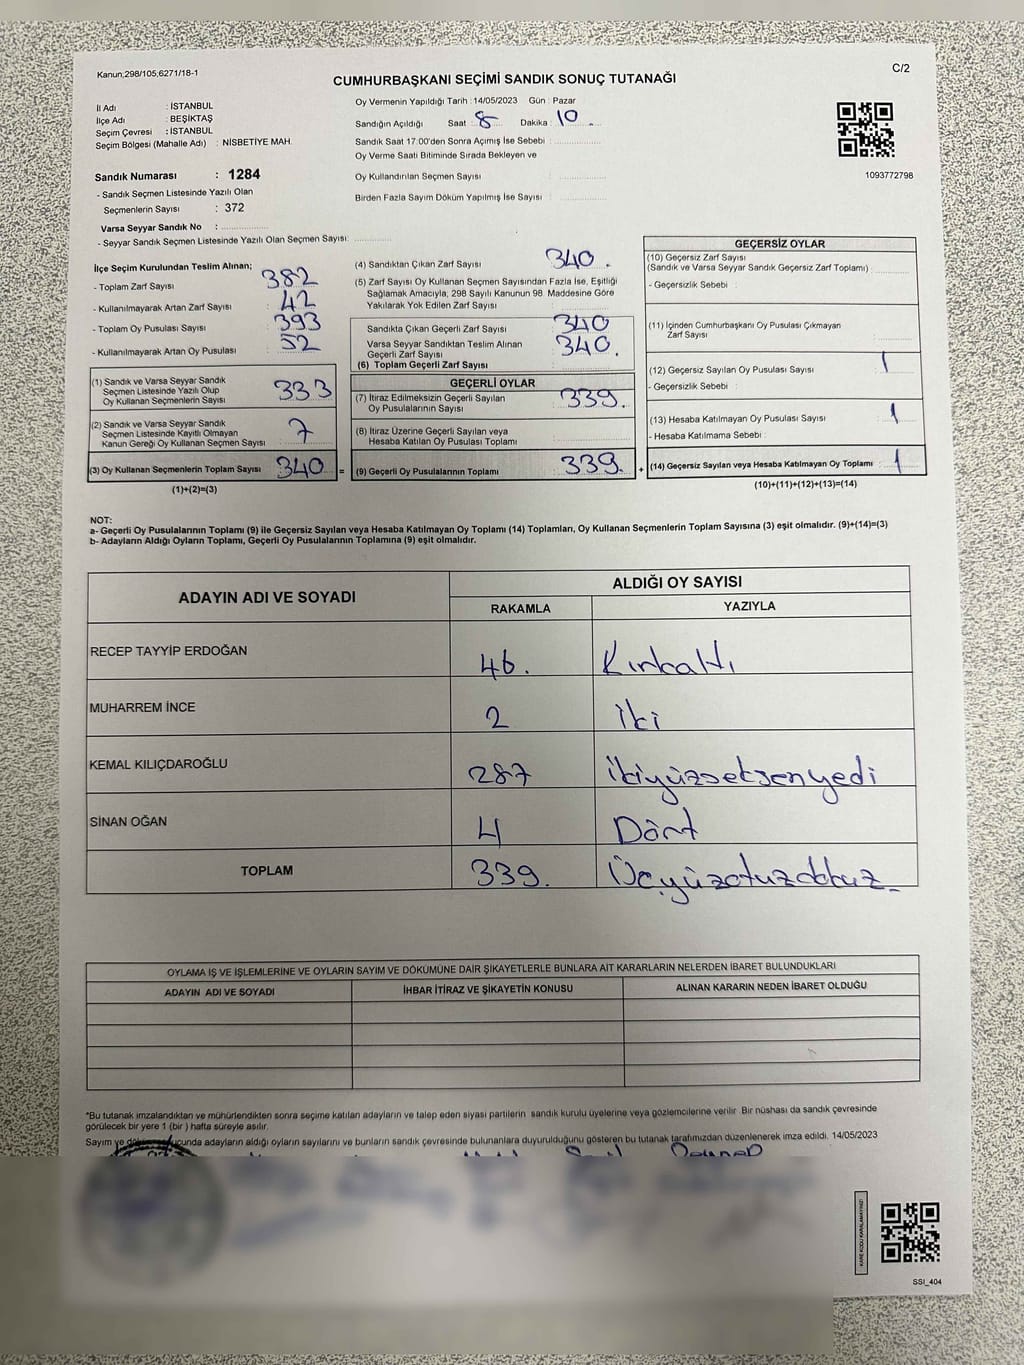 Kanun;298/105;6271/18-1
C/2
CUMHURBAŞKANI SEÇİMİ SANDIK SONUÇ TUTANAĞI
İl Adı : İSTANBUL
İlçe Adı : BEŞİKTAŞ
Seçim Çevresi : İSTANBUL
Seçim Bölgesi (Mahalle Adı) : NİSBETİYE MAH.
Sandık Numarası : 1284
- Sandık Seçmen Listesinde Yazılı Olan
Seçmenlerin Sayısı : 372
Varsa Seyyar Sandık No :
- Seyyar Sandık Seçmen Listesinde Yazılı Olan Seçmen Sayısı:
Oy Vermenin Yapıldığı Tarih : 14/05/2023 Gün : Pazar
Sandığın Açıldığı Saat : 8 Dakika : 10
Sandık Saat 17:00'den Sonra Açımış İse Sebebi :
Oy Verme Saati Bitiminde Sırada Bekleyen ve
Oy Kullandırılan Seçmen Sayısı :
Birden Fazla Sayım Döküm Yapılmış İse Sayısı :
1093772798
İlçe Seçim Kurulundan Teslim Alınan;
- Toplam Zarf Sayısı : 382
- Kullanılmayarak Artan Zarf Sayısı : 42
- Toplam Oy Pusulası Sayısı : 393
- Kullanılmayarak Artan Oy Pusulası : 52
(1) Sandık ve Varsa Seyyar Sandık
Seçmen Listesinde Yazılı Olup
Oy Kullanan Seçmenlerin Sayısı : 333
(2) Sandık ve Varsa Seyyar Sandık
Seçmen Listesinde Kayıtlı Olmayan
Kanun Gereği Oy Kullanan Seçmen Sayısı : 7
(3) Oy Kullanan Seçmenlerin Toplam Sayısı : 340 =
(1)+(2)=(3)
(4) Sandıktan Çıkan Zarf Sayısı : 340.
(5) Zarf Sayısı Oy Kullanan Seçmen Sayısından Fazla İse, Eşitliği
Sağlamak Amacıyla, 298 Sayılı Kanunun 98. Maddesine Göre
Yakılarak Yok Edilen Zarf Sayısı :
Sandıkta Çıkan Geçerli Zarf Sayısı : 340
Varsa Seyyar Sandıktan Teslim Alınan : 340.
Geçerli Zarf Sayısı
(6) Toplam Geçerli Zarf Sayısı :
GEÇERLİ OYLAR
(7) İtiraz Edilmeksizin Geçerli Sayılan : 339.
Oy Pusulalarının Sayısı
(8) İtiraz Üzerine Geçerli Sayılan veya
Hesaba Katılan Oy Pusulası Toplamı
(9) Geçerli Oy Pusulalarının Toplamı : 339. +
GEÇERSİZ OYLAR
(10) Geçersiz Zarf Sayısı
(Sandık ve Varsa Seyyar Sandık Geçersiz Zarf Toplamı) :
- Geçersizlik Sebebi :
(11) İçinden Cumhurbaşkanı Oy Pusulası Çıkmayan
Zarf Sayısı :
(12) Geçersiz Sayılan Oy Pusulası Sayısı : 1
- Geçersizlik Sebebi :
(13) Hesaba Katılmayan Oy Pusulası Sayısı : 1
- Hesaba Katılmama Sebebi :
(14) Geçersiz Sayılan veya Hesaba Katılmayan Oy Toplamı : 1
(10)+(11)+(12)+(13)=(14)
NOT:
a- Geçerli Oy Pusulalarının Toplamı (9) ile Geçersiz Sayılan veya Hesaba Katılmayan Oy Toplamı (14) Toplamları, Oy Kullanan Seçmenlerin Toplam Sayısına (3) eşit olmalıdır. (9)+(14)=(3)
b- Adayların Aldığı Oyların Toplamı, Geçerli Oy Pusulalarının Toplamına (9) eşit olmalıdır.
ADAYIN ADI VE SOYADI
ALDIĞI OY SAYISI
RAKAMLA YAZIYLA
RECEP TAYYİP ERDOĞAN 46. Kırkaltı
MUHARREM İNCE 2 İki
KEMAL KILIÇDAROĞLU 287 İkiyüzseksenyedi
SİNAN OĞAN 4 Dört
TOPLAM 339. Üçyüzotuzdokuz
OYLAMA İŞ VE İŞLEMLERİNE VE OYLARIN SAYIM VE DÖKÜMÜNE DAİR ŞİKAYETLERLE BUNLARA AİT KARARLARIN NELERDEN İBARET BULUNDUKLARI
ADAYIN ADI VE SOYADI İHBAR İTİRAZ VE ŞİKAYETİN KONUSU ALINAN KARARIN NEDEN İBARET OLDUĞU
*Bu tutanak imzalandıktan ve mühürlendikten sonra seçime katılan adayların ve talep eden siyasi partilerin sandık kurulu üyelerine veya gözlemcilerine verilir. Bir nüshası da sandık çevresinde
görülecek bir yere 1 (bir) hafta süreyle asılır.
Sayım ve adayların aldığı oyların sayılarını ve bunların sandık çevresinde bulunanlara duyurulduğunu gösteren bu tutanak tarafımızdan düzenlenerek imza edildi. 14/05/2023
KARE KODU KARALAMAYINIZ!
SSI_404